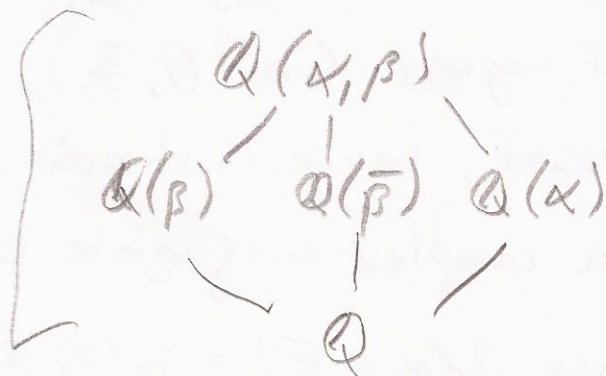 Q(α, β)
Q(β) Q(β̄) Q(α)
Q